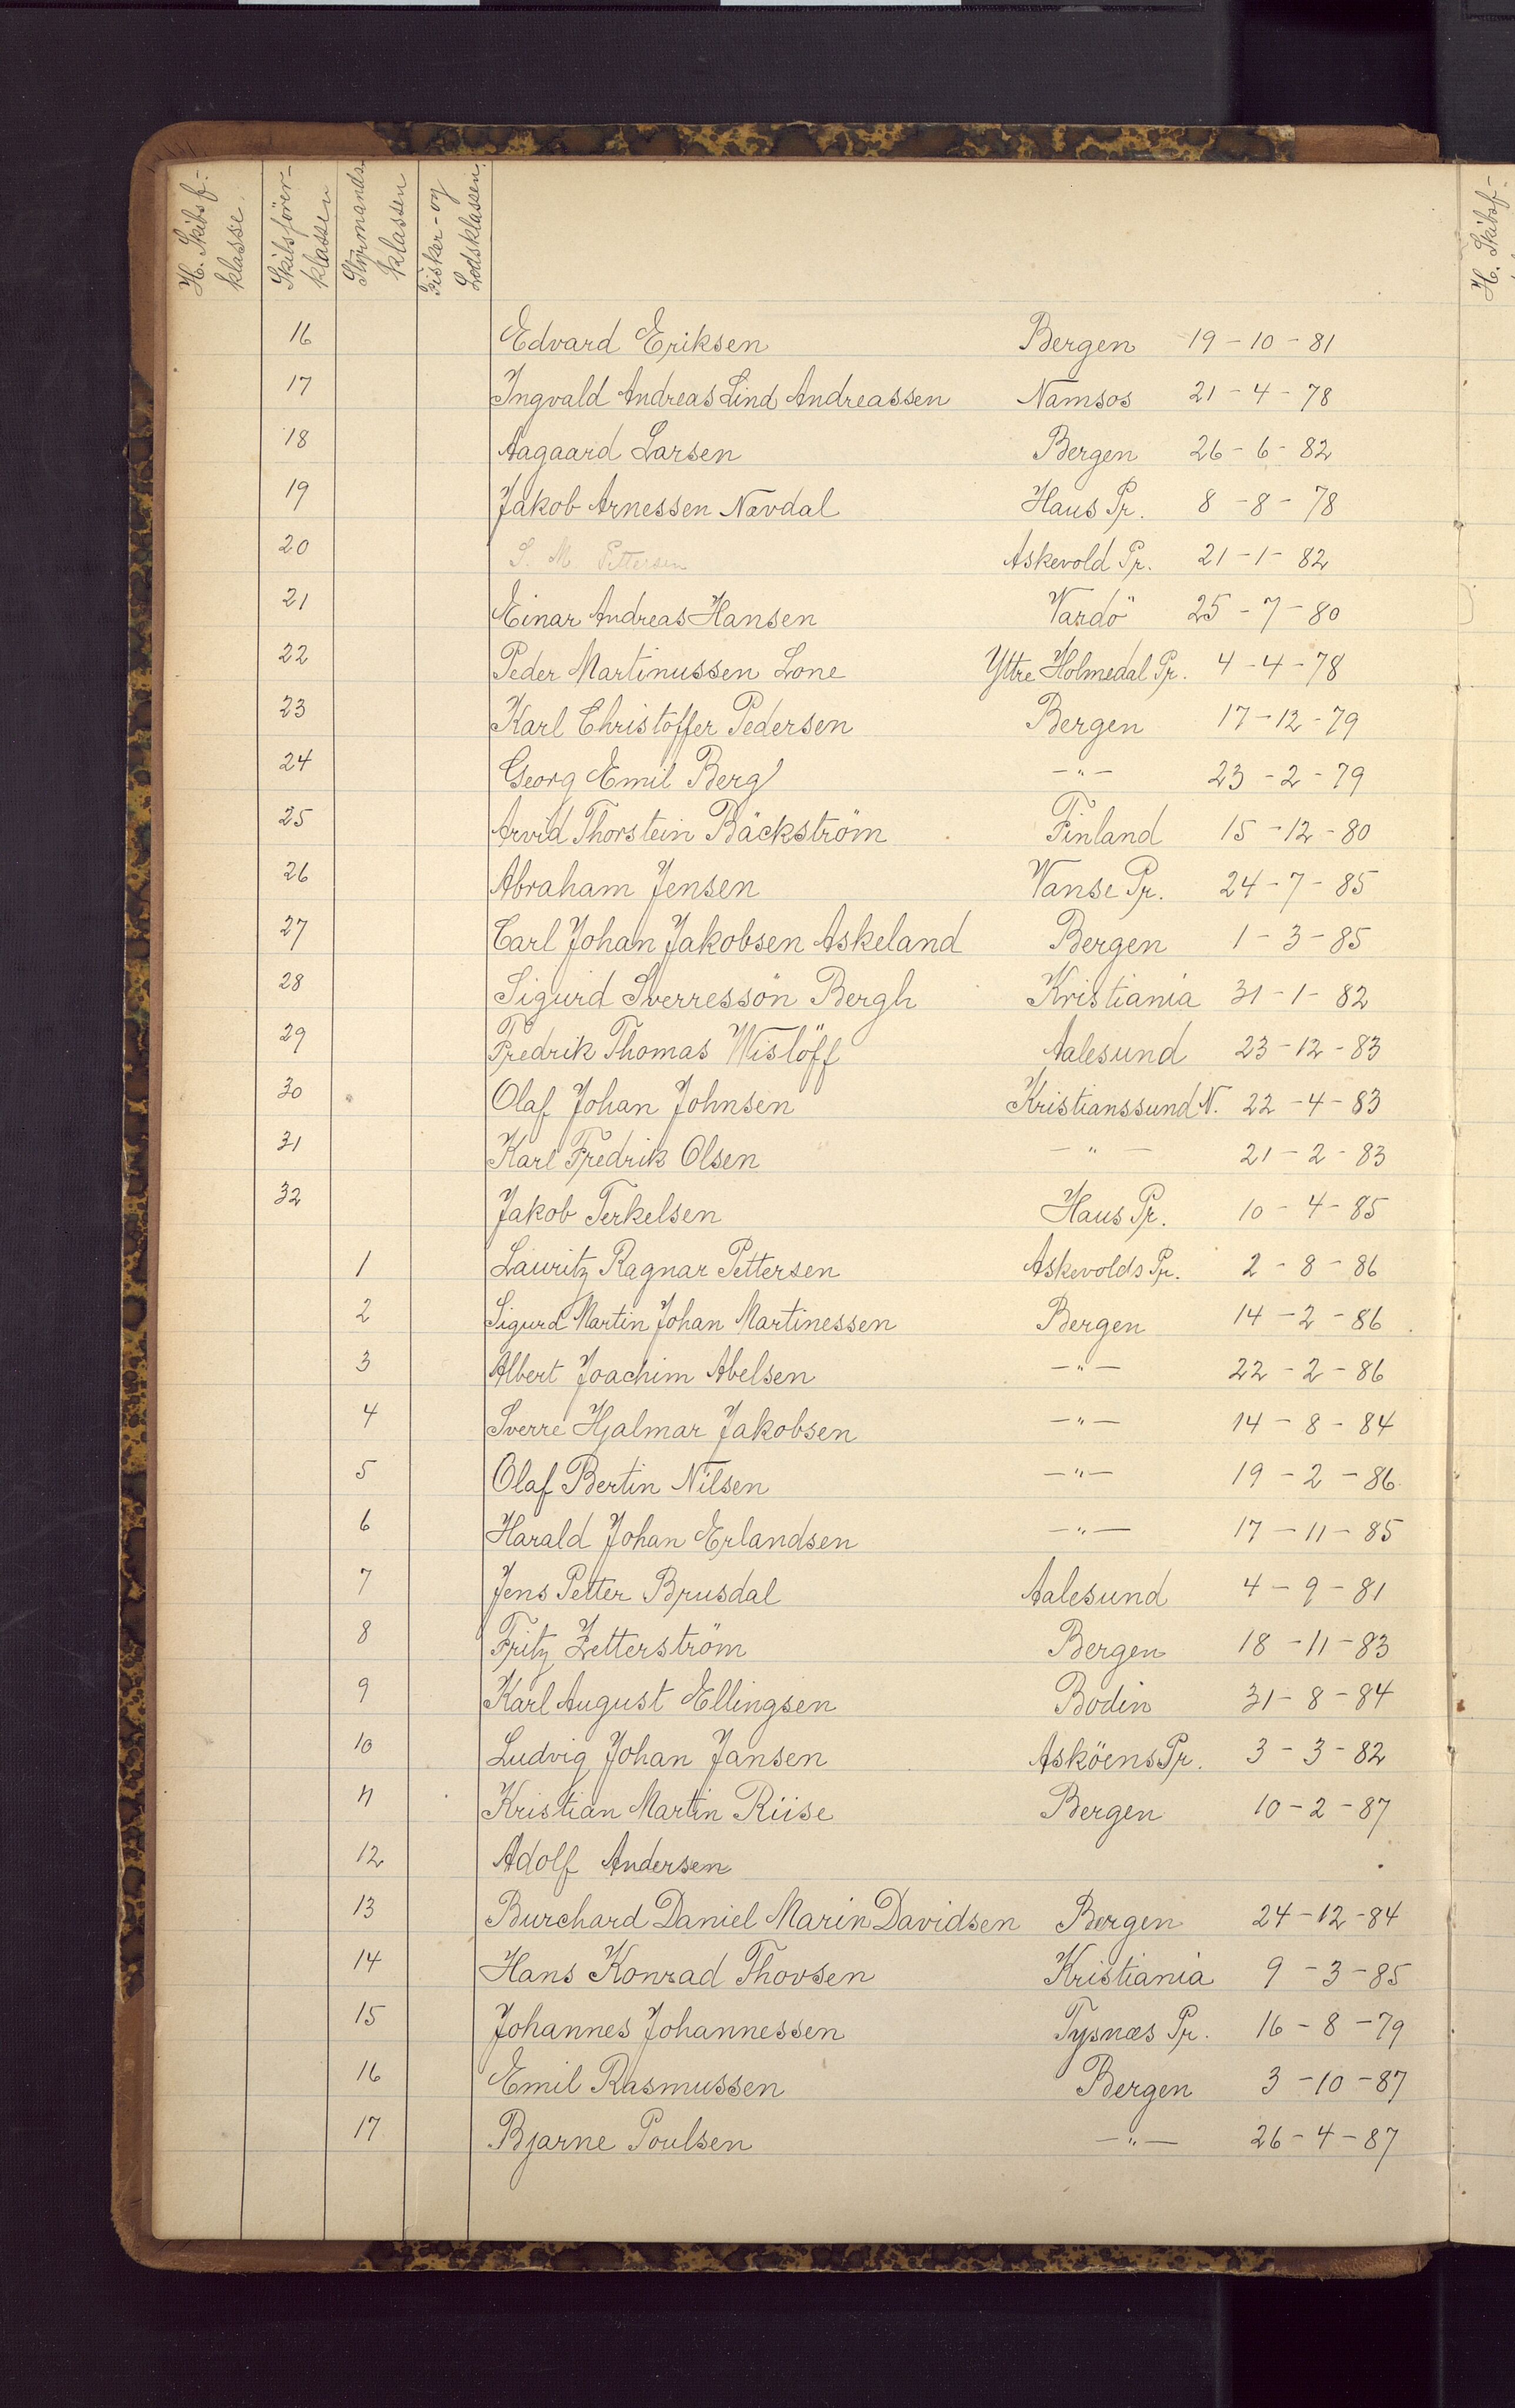 H. Skibsf-klasse.
Skibsförer-klassen
Styrmands-klassen
Fisker- og Lodsklassen.
H. Skibsf-
16 Edvard Eriksen Bergen 19-10-81
17 Ingvald Andreas Lind Andreassen Namsos 21-4-78
18 Aagaard Larsen Bergen 26-6-82
19 Jakob Arnessen Navdal Haus Pr. 8-8-78
20 S. M. Pettersen Askevold Pr. 21-1-82
21 Einar Andreas Hansen Vardö 25-7-80
22 Peder Martinussen Lone Yttre Holmedal Pr. 4-4-78
23 Karl Christoffer Pedersen Bergen 17-12-79
24 Georg Emil Berg -"- 23-2-79
25 Arvid Thorstein Bäckström Finland 15-12-80
26 Abraham Jensen Vanse Pr. 24-7-85
27 Carl Johan Jakobsen Askeland Bergen 1-3-85
28 Sigurd Sverressön Bergh Kristiania 31-1-82
29 Fredrik Thomas Wislöff Aalesund 23-12-83
30 Olaf Johan Johnsen Kristianssund N. 22-4-83
31 Karl Fredrik Olsen -"- 21-2-83
32 Jakob Terkelsen Haus Pr. 10-4-85
1 Lauritz Ragnar Pettersen Askevolds Pr. 2-8-86
2 Sigurd Martin Johan Martinessen Bergen 14-2-86
3 Albert Joachim Abelsen -"- 22-2-86
4 Sverre Hjalmar Jakobsen -"- 14-8-84
5 Olaf Bertin Nilsen -"- 19-2-86
6 Harald Johan Erlandsen -"- 17-11-85
7 Jens Petter Brusdal Aalesund 4-9-81
8 Fritz Zetterström Bergen 18-11-83
9 Karl August Ellingsen Bodin 31-8-84
10 Ludvig Johan Jansen Asköens Pr. 3-3-82
11 Kristian Martin Riise Bergen 10-2-87
12 Adolf Andersen
13 Burchard Daniel Marin Davidsen Bergen 24-12-84
14 Hans Konrad Thovsen Kristiania 9-3-85
15 Johannes Johannessen Tysnæs Pr. 16-8-79
16 Emil Rasmussen Bergen 3-10-87
17 Bjarne Poulsen -"- 26-4-87